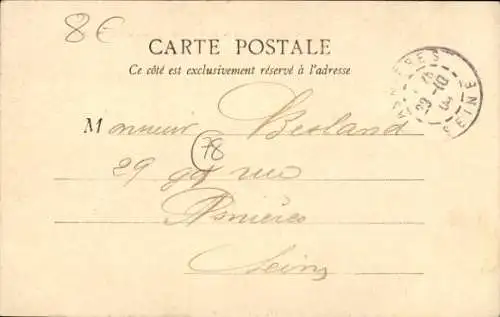 8€
CARTE POSTALE
Ce côté est exclusivement réservé à l'adresse
ASNIERES
SEINE
Monsieur Besland
78
29 rue
Asnières
Seine